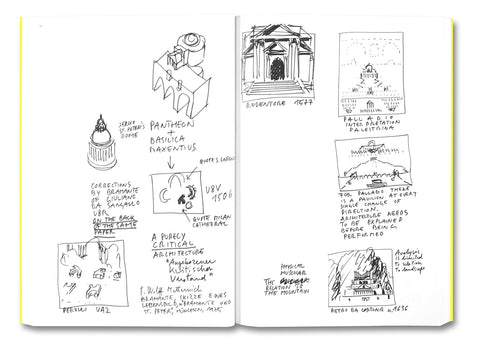 SERLIO
ST. PETER'S
DOME
PANTHEON
+
BASILICA
MAXENTIUS
CORRECTIONS
BY BRAMANTE
OF GIULIANO
DA SANGALLO
U8R
ON THE BACK
OF THE SAME
PAPER
U8V
1506
QUOTE MILAN
CATHEDRAL
A PURELY
CRITICAL
ARCHITECTURE
"Angeborenen
Kritischen
Verstand"
F. Wolff Metternich
BRAMANTE, SKIZZE EINES
UND
ST. PETER, MÜNCHEN, 1975
UA2
REDENTORE 1577
PALLADIO
INTERPRETATION
PALESTRINA
FOR PALLADIO THERE
IS A PAVILION AT EVERY
SINGLE CHANGE OF
DIRECTION.
ARCHITECTURE NEEDS
TO BE EXPLAINED
BEFORE BEING
PERFORMED
PHYSICAL
THE
RELATION TO
THE MOUNTAIN
Analysis
is limited
to relation
to landscape
PIETRO DA CORTONA 1636